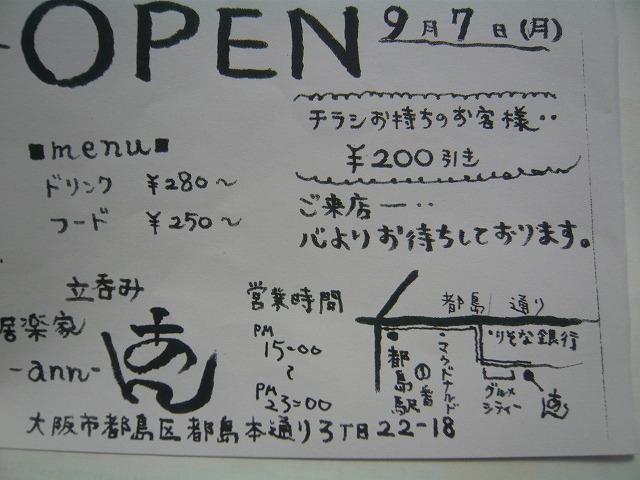 OPEN 9月7日(月)
チラシお持ちのお客様‥
¥200引き
■menu■
ドリンク ¥280〜
フード ¥250〜
ご来店一‥
心よりお待ちしております。
立呑み
居楽家
-ann-
あん
営業時間
PM
15:00
〜
PM
23:00
都島通り
りそな銀行
都島駅
①番
・マクドナルド
グルメ
シティー
あん
大阪市都島区都島本通り3丁目22-18